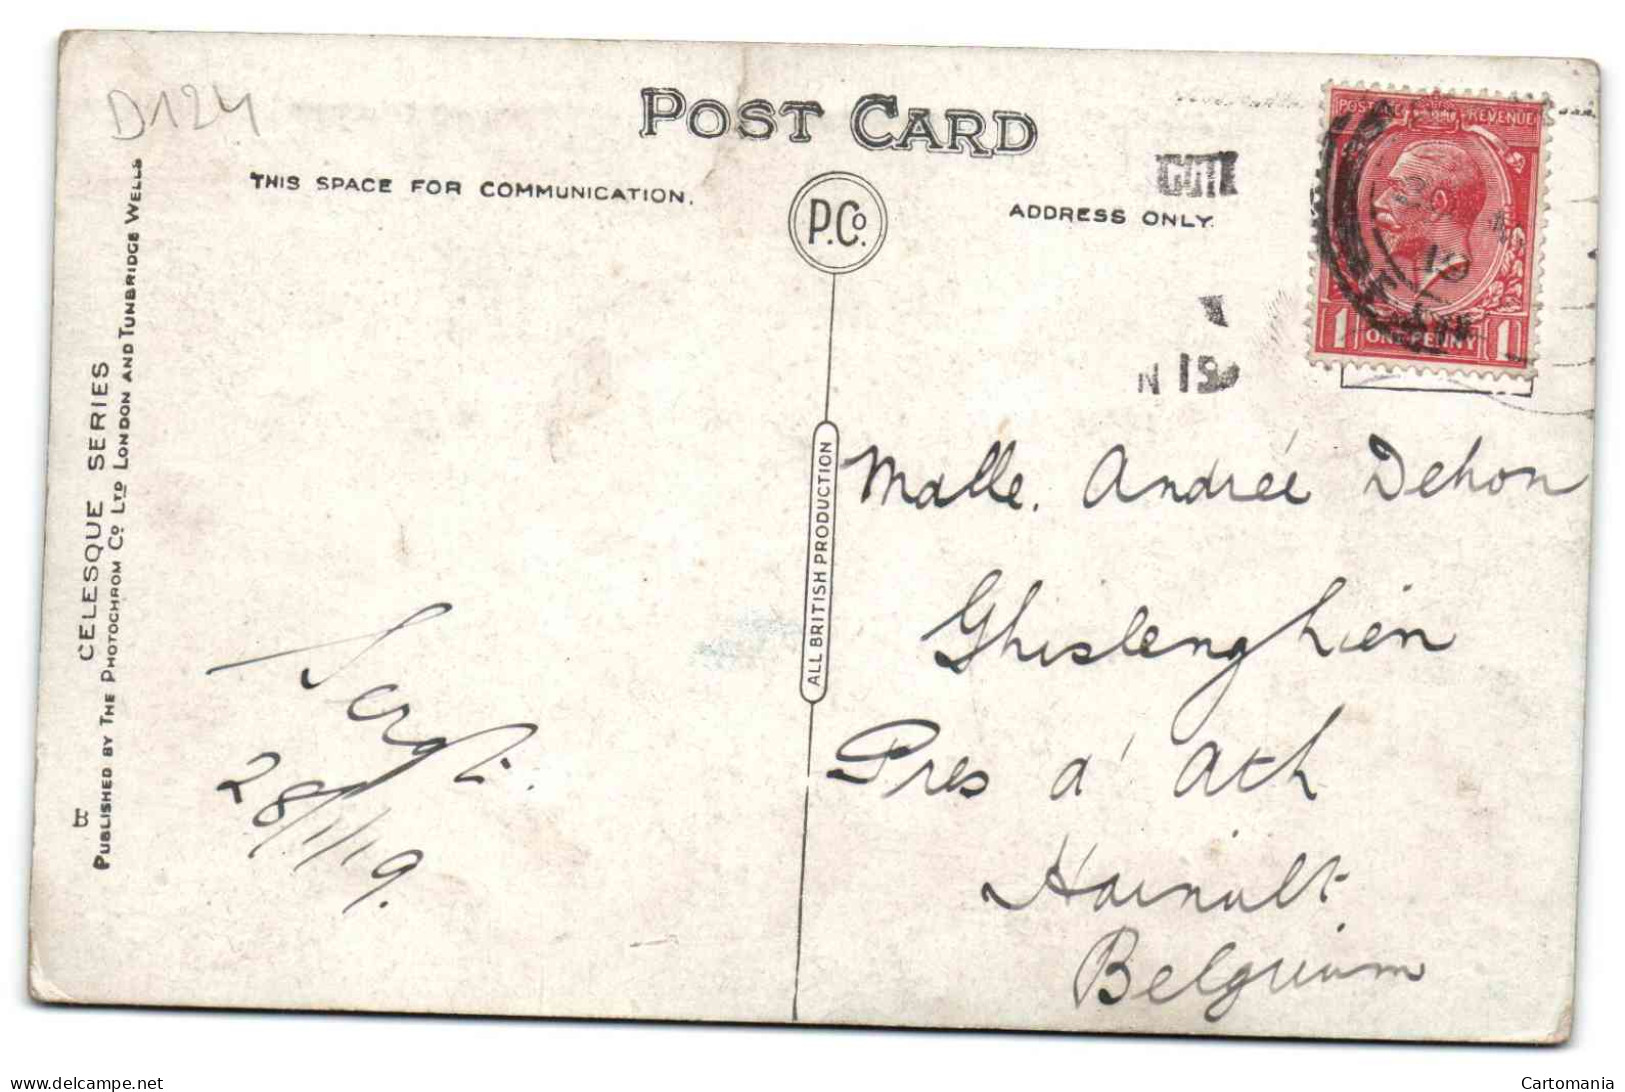 D124
POST CARD
THIS SPACE FOR COMMUNICATION.
P.Co.
ADDRESS ONLY.
POSTAGE REVENUE
1 ONE PENNY 1
N 19
CELESQUE SERIES
PUBLISHED BY THE PHOTOCHROM CO LTD LONDON AND TUNBRIDGE WELLS
B
ALL BRITISH PRODUCTION
28/1/19.
Malle. Andrée Dehon
Ghislenghien
Pres a' Ath
Hainult
Belgium
delcampe.net
Cartomania